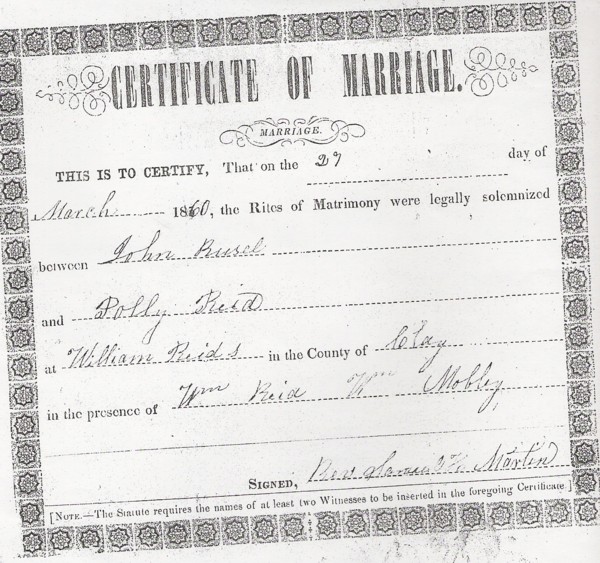 CERTIFICATE OF MARRIAGE.
MARRIAGE.
THIS IS TO CERTIFY, That on the 27 day of
March 1860, the Rites of Matrimony were legally solemnized
between John Rusel
and Polly Reid
at William Reids in the County of Clay
in the presence of Wm Reid Wm Mobley
SIGNED, Rev Samuel Martin
[NOTE.—The Statute requires the names of at least two Witnesses to be inserted in the foregoing Certificate.]